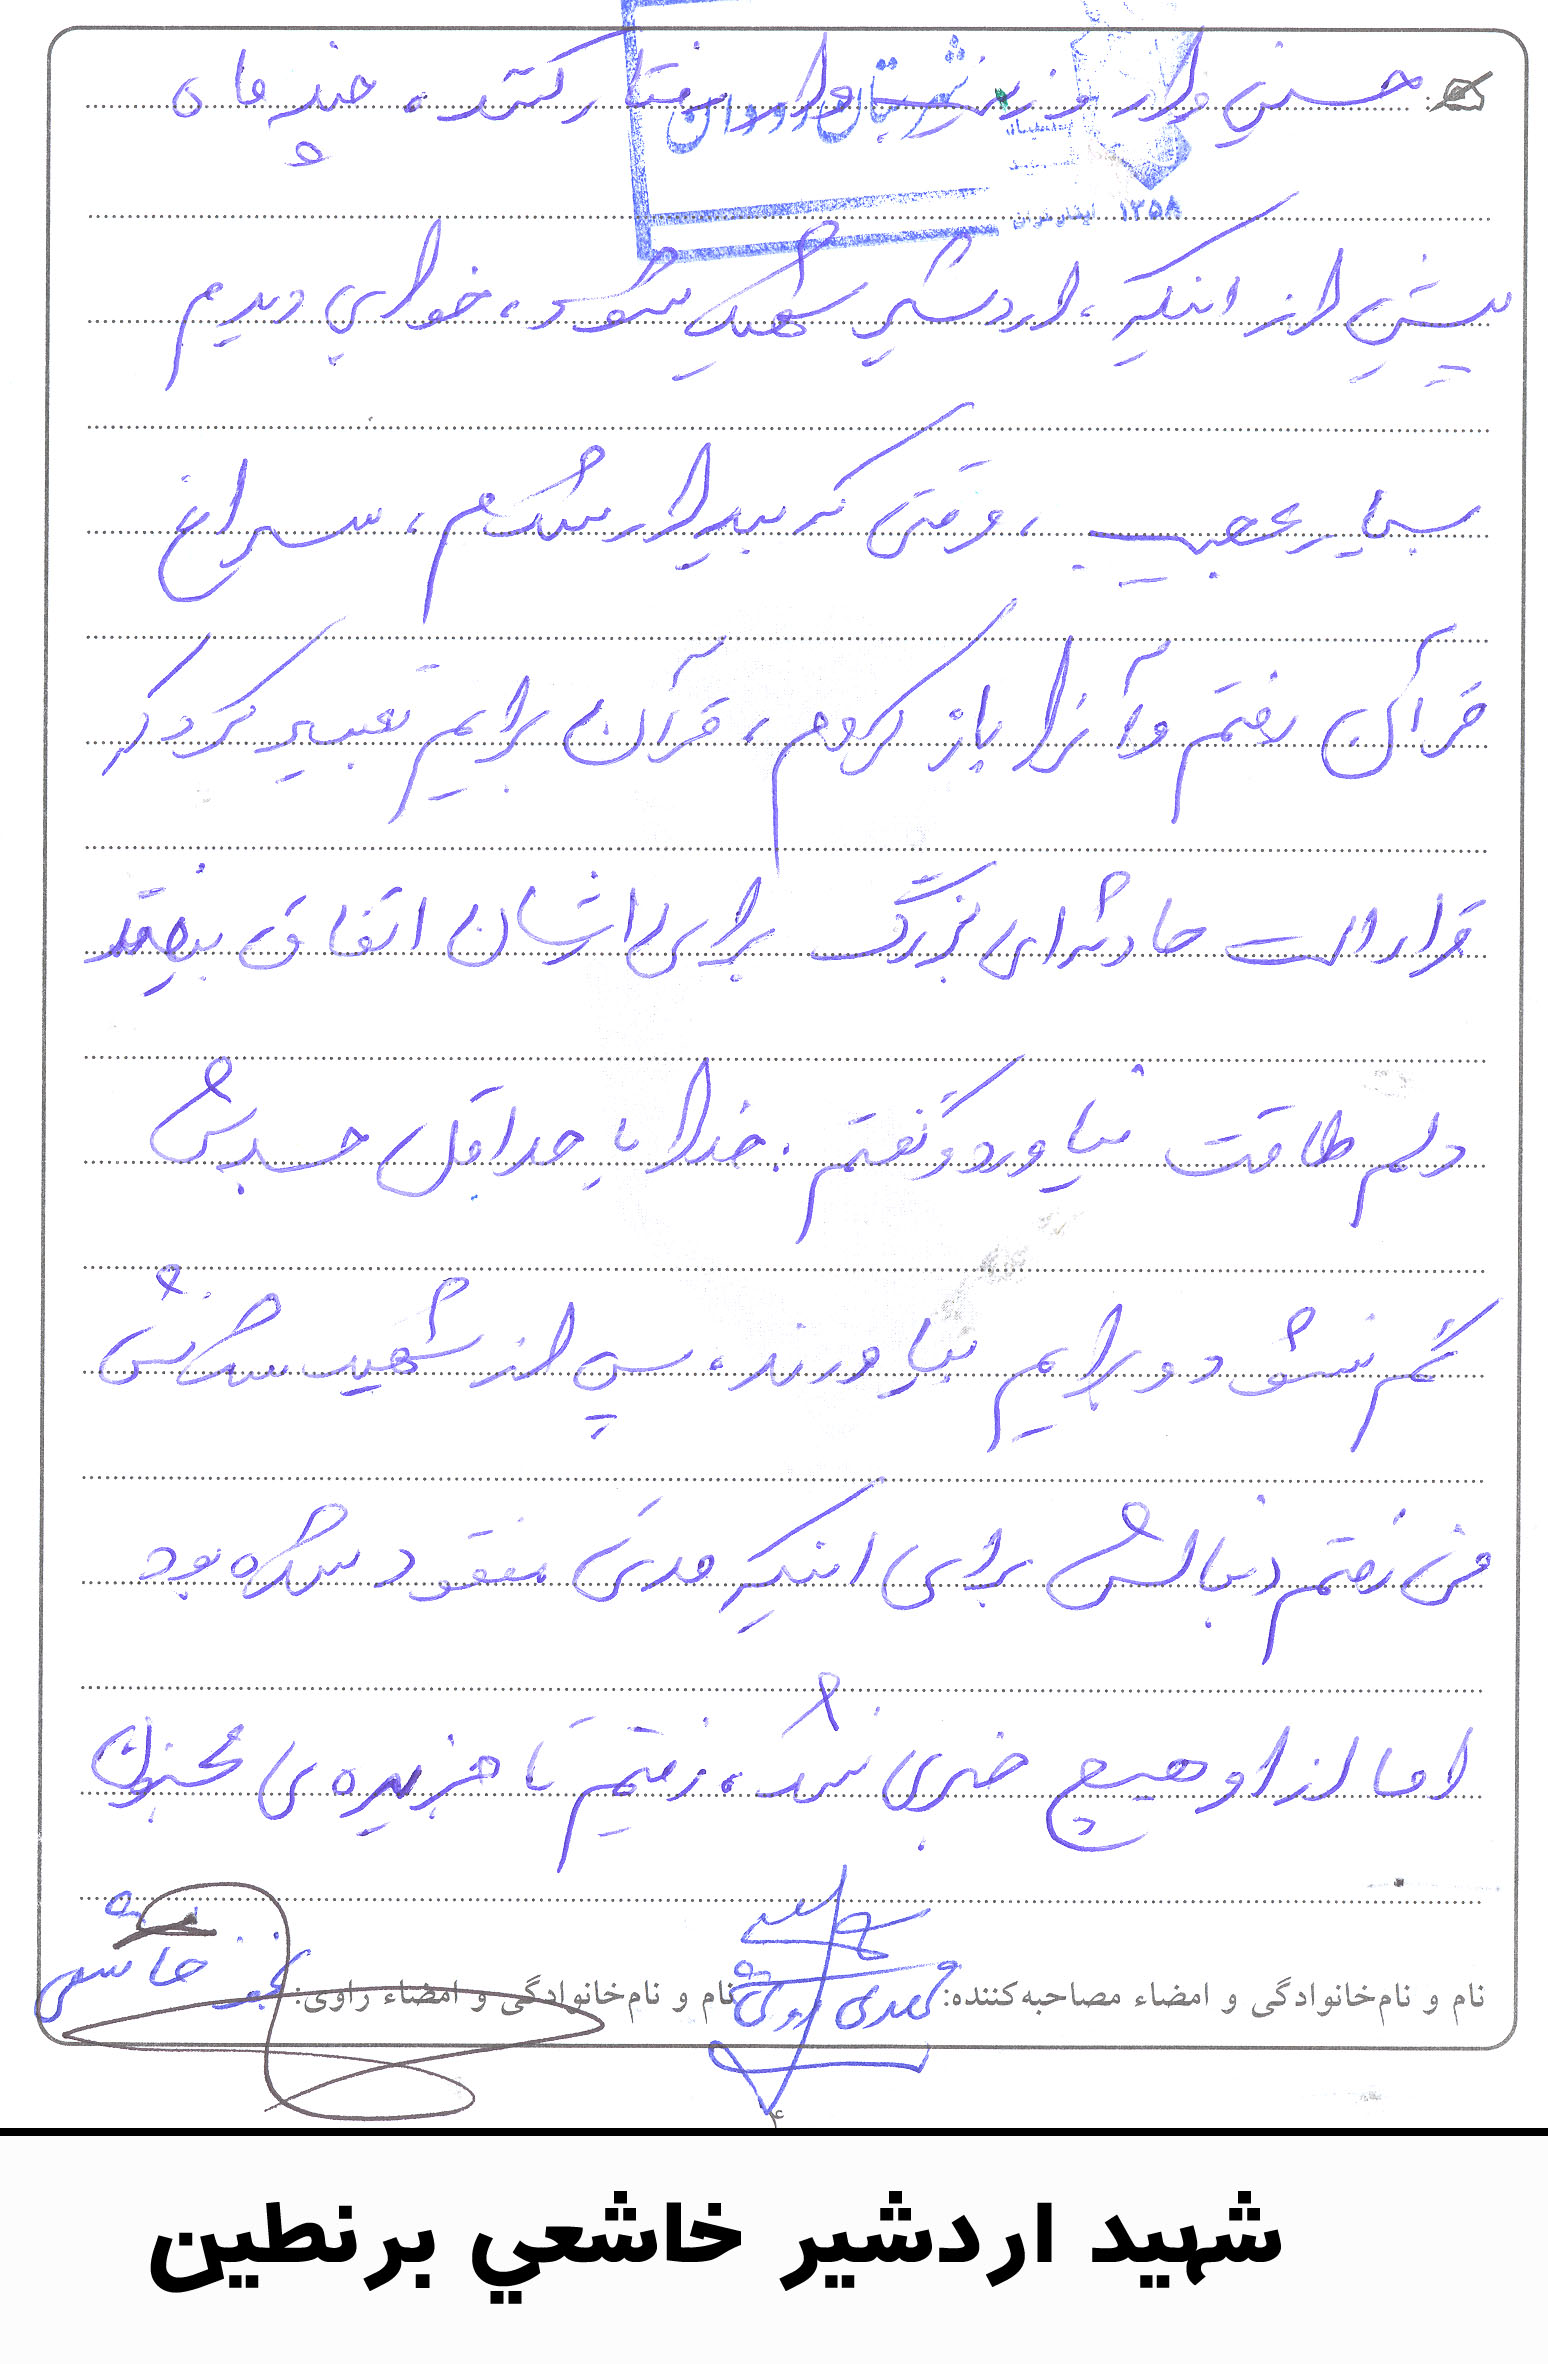 حسین وار و زینب وار رفتار کنند، چند ماه
پیش از اینکه، اردشیر شهید شود، خوابی دیدم
بسیار عجیب، وقتی که بیدار شدم، سراغ
قرآن رفتم و آنرا باز کردم، قرآن برایم تعبیر کرد که
قرار است حادثه‌ای بزرگ برای ایشان اتفاق بیفتد
دلم طاقت نیاورد و گفتم: خدایا حداقل جسدش
گم نشود و برایم بیاورند، پس از شهید شدنش
من رفتم دنبالش برای اینکه مدتی مفقود شده بود
اما از او هیچ خبری نشد، رفتیم تا جزیره‌ی مجنون
نام و نام‌خانوادگی و امضاء مصاحبه‌کننده: مهدی
نام و نام‌خانوادگی و امضاء راوی: خاشعی
شهید اردشیر خاشعي برنطین